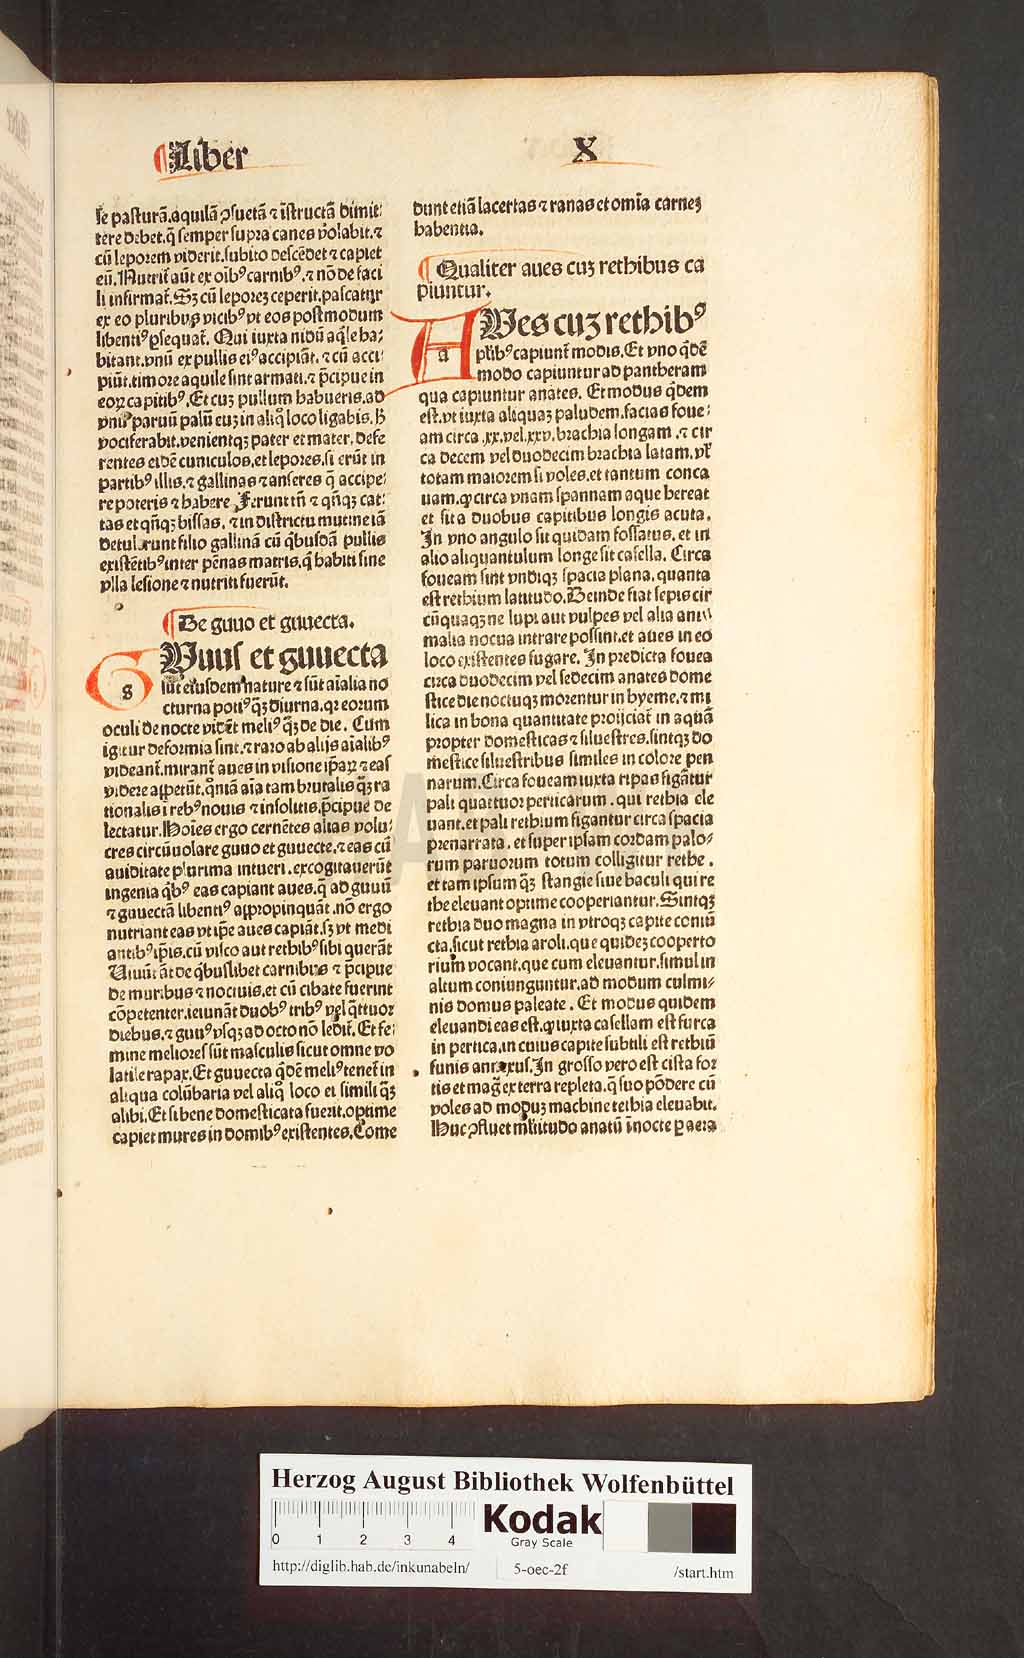 Liber
X
se pasturã.aquilã ꝓsuetã ⁊ ĩstructã dimit⸗
tere debet.q̃ semper supra canes volabit.⁊
cũ leporem viderit.subito descẽdet ⁊ capiet
eũ. Nutrit᷑ aũt ex oĩbꝰ carnibꝰ.⁊ nõ de faci
li infirmat᷑. Sꝫ cũ leporeꝫ ceperit.pascatur
ex eo pluribus vicibꝰ vt eos postmodum
libentiꝰ ꝑsequat᷑. Qui iuxta nidũ aq̃le ha⸗
bitant.vnũ ex pullis eiꝰ accipiãt.⁊ cũ acci⸗
piũt.timore aquile sint armati.⁊ p̃cipue in
eoꝝ capitibꝰ. Et cuꝫ pullum habueris.ad
vnũ paruũ palũ euꝫ in aliq̃ loco ligabis.hͨ
vociferabit.venientqꝫ pater et mater. defe
rentes eidẽ cuniculos.et lepores.si erũt in
partibꝰ illis.⁊ gallinas ⁊ anseres q̃ accipe⸗
re poteris ⁊ habere. Ferunt tñ ⁊ qñqꝫ cat⸗
tas et qñqꝫ bissas. ⁊ in districtu mutine iã
detulerunt filio gallinã cũ q̃busdã pullis
existẽtibꝰ inter pẽnas matris.q̃ habiti sine
vlla lesione ⁊ nutriti fuerũt.
¶ De guuo et guuecta.
g
GVuus et guuecta
sũt eiusdem nature ⁊ sũt aĩalia no
cturna potiꝰ q̃ꝫ diurna.qꝛ eorum
oculi de nocte vidẽt meliꝰ q̃ꝫ de die. Cum
igitur deformia sint.⁊ raro ab alijs aĩalibꝰ
videant᷑.mirant᷑ aues in visione ip̃aꝝ ⁊ eas
videre appetũt.qm̃ aĩa tam brutalis q̃ꝫ ra
tionalis ĩ rebꝰ nouis ⁊ insolitis.p̃cipue de
lectatur. Hoĩes ergo cernẽtes alias volu⸗
cres circũuolare guuo et guuecte.⁊ eas cũ
auiditate plurima intueri.excogitauerũt
ingenia q̃bꝰ eas capiant aues.q̃ ad guuũ
⁊ guuectã libentiꝰ appropinquãt.nõ ergo
nutriant eas vt ip̃e aues capiãt.sꝫ vt medi
antibꝰ ip̃is.cũ visco aut rethibꝰ sibi querãt
Viuũt ãt de q̃buslibet carnibus ⁊ p̃cipue
de muribus ⁊ nociuis.et cũ cibate fuerint
cõpetenter.ieiunãt duobꝰ tribꝰ vel q̃ttuor
diebus.⁊ guuꝰ vsqꝫ ad octo nõ ledit᷑. Et fe⸗
mine meliores sũt masculis sicut omne vo
latile rapax. Et guuecta q̃dẽ meliꝰ tenet᷑ in
aliqua colũbaria vel aliq̃ loco ei simili q̃ꝫ
alibi. Et si bene domesticata fuerit.optime
capiet mures in domibꝰ existentes. Come
dunt etiã lacertas ⁊ ranas et omĩa carneꝫ
habentia.
¶ Qualiter aues cuꝫ rethibus ca
piuntur.
a
AVes cuꝫ rethibꝰ
plĩbꝰ capiunt᷑ modis. Et vno q̃dẽ
modo capiuntur ad pantheram
qua capiuntur anates. Et modus q̃dem
est.vt iuxta aliquaꝫ paludem.facias foue⸗
am circa .xx.vel.xxv.brachia longam .⁊ cir
ca decem vel duodecim brachia latam.vl̃
totam maiorem si voles.et tantum conca
uam.ꝙ circa vnam spannam aque hereat
et sit a duobus capitibus longis acuta.
In vno angulo sit quidam fossatus.et in
alio aliquantulum longe sit casella. Circa
foueam sint vndiqꝫ spacia plana.quanta
est rethium latitudo. Deinde fiat sepis cir
cũquaqꝫ ne lupi aut vulpes vel alia ani⸗
malia nocua intrare possint.et aues in eo
loco existentes fugare. In predicta fouea
circa duodecim vel sedecim anates dome
stice die noctuqꝫ morentur in hyeme.⁊ mi
lica in bona quantitate proijciat᷑ in aquã
propter domesticas ⁊ siluestres.sintqꝫ do
mestice siluestribus similes in colore pen
narum. Circa foueam iuxta ripas figãtur
pali quattuor perticarum . qui rethia ele
uant.et pali rethium figantur circa spacia
prenarrata . et super ipsam cordam palo⸗
rum paruorum totum colligitur rethe .
et tam ipsum q̃ꝫ stangie siue baculi qui re
the eleuant optime cooperiantur. Sintqꝫ
rethia duo magna in vtroqꝫ capite coniũ
cta.sicut rethia aroli.que quideꝫ cooperto
rium vocant.que cum eleuantur.simul in
altum coniunguntur.ad modum culmi⸗
nis domus paleate . Et modus quidem
eleuandi eas est.ꝙ iuxta casellam est furca
in pertica.in cuius capite subtili est rethiũ
funis annexus. In grosso vero est cista for
tis et mag̃ ex terra repleta.q̃ suo põdere cũ
voles ad moduꝫ machine rethia eleuabit.
Huc ꝓfluet ml̃titudo anatũ ĩ nocte ꝑ aera
Herzog August Bibliothek Wolfenbüttel
0 1 2 3 4
Kodak
Gray Scale
http://diglib.hab.de/inkunabeln/
5-oec-2f
/start.htm